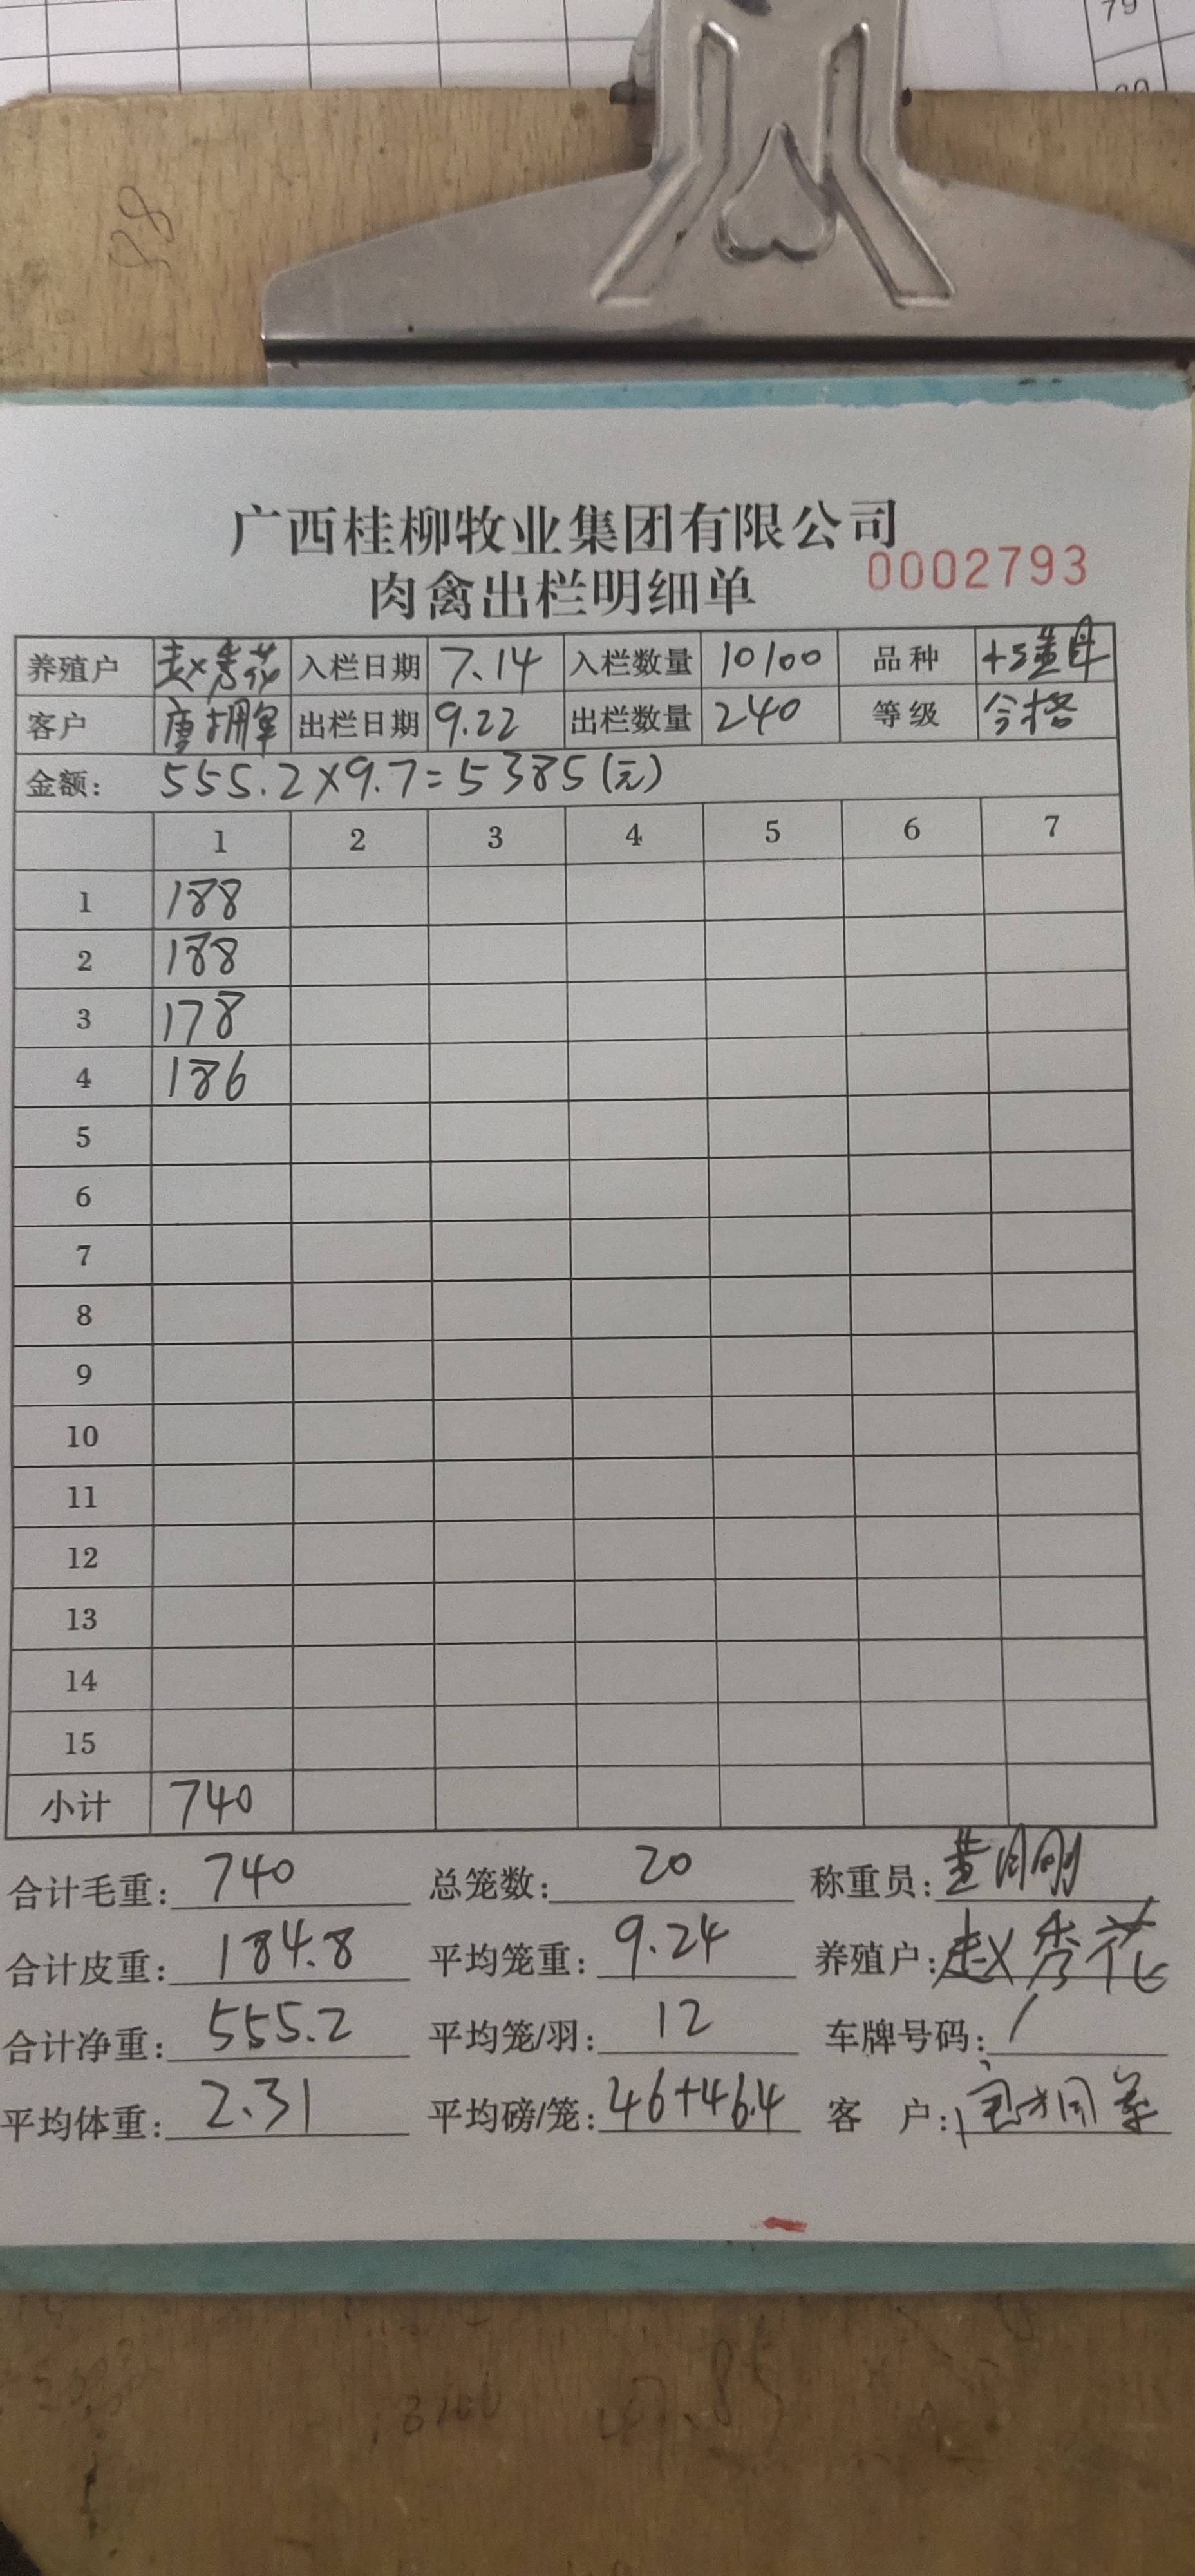 79
98
广西桂柳牧业集团有限公司
0002793
肉禽出栏明细单
养殖户 赵秀花 入栏日期 7.14 入栏数量 10100 品种
客户 唐拥军 出栏日期 9.22 出栏数量 240 等级 合格
金额: 555.2×9.7=5385(元)
1 2 3 4 5 6 7
1 188
2 188
3 178
4 186
5
6
7
8
9
10
11
12
13
14
15
小计 740
合计毛重: 740 总笼数: 20 称重员:
合计皮重: 184.8 平均笼重: 9.24 养殖户: 赵秀花
合计净重: 555.2 平均笼/羽: 12 车牌号码: /
平均体重: 2.31 平均磅/笼: 46+46.4 客 户: